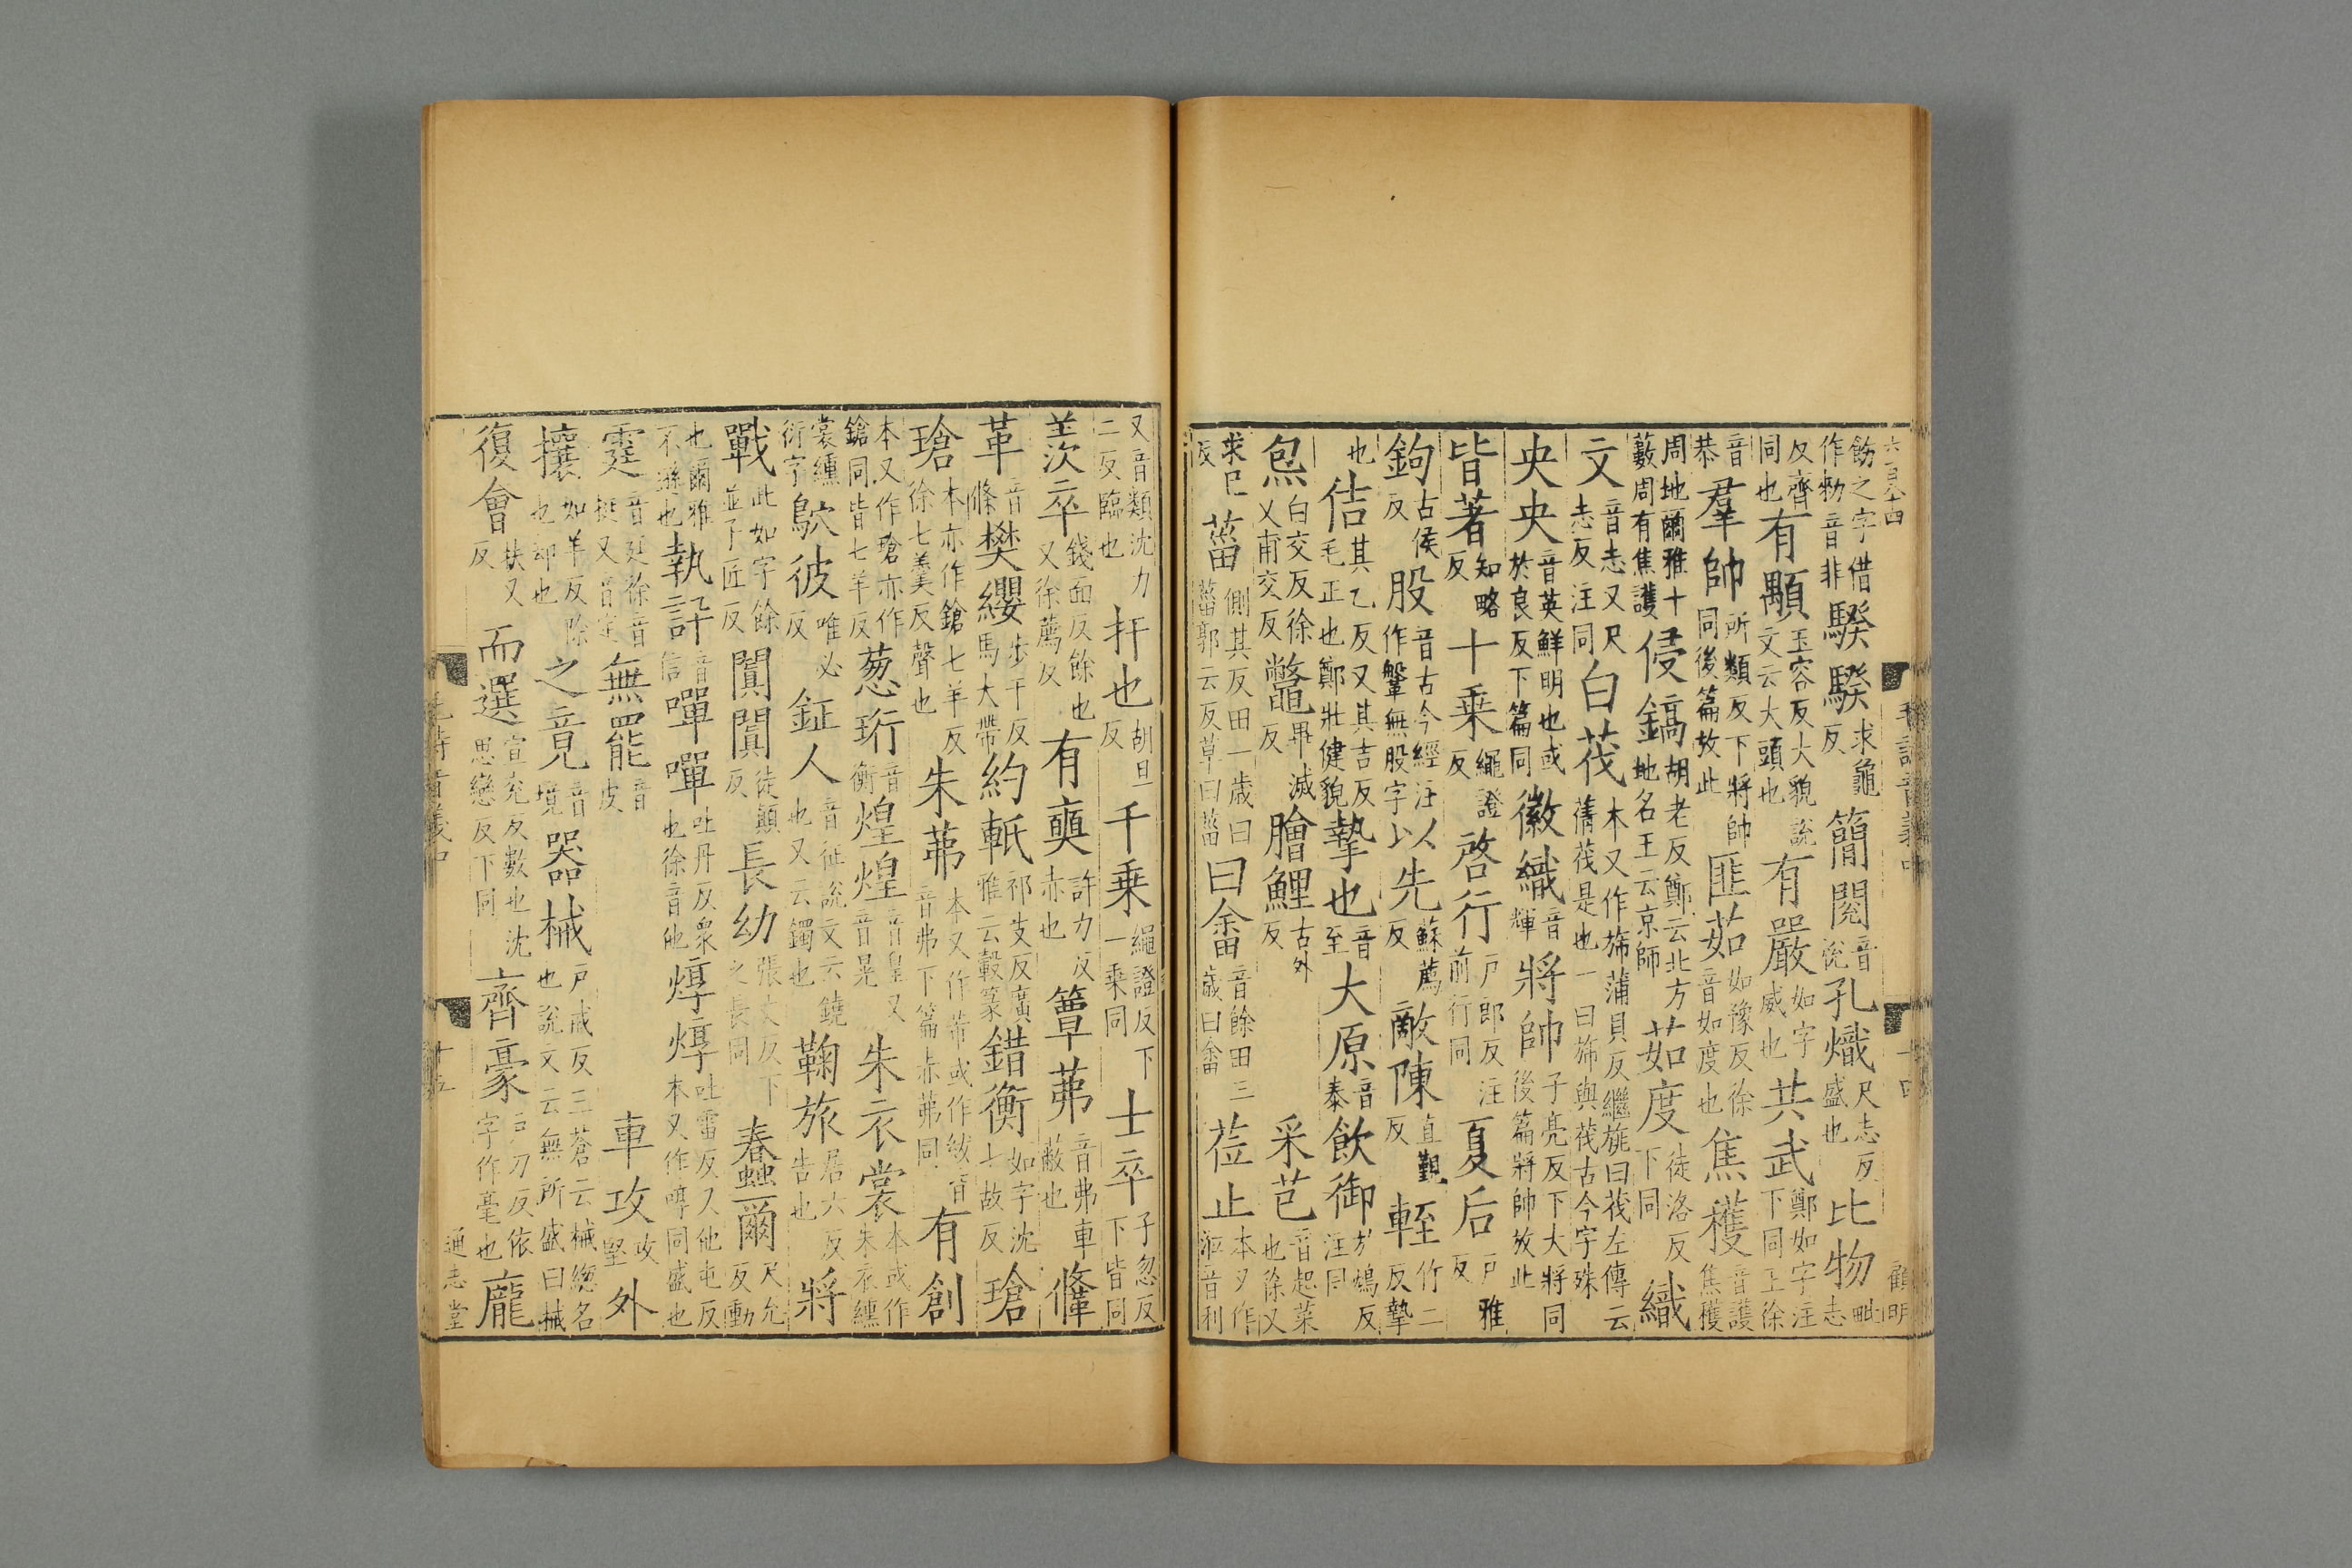 飭之字借作勑音非騤騤求龜反簡閱音悅孔熾尺志反盛也比物毗志
反齊同也有顒玉容反大貌說文云大頭也有嚴如字威也共武鄭如字注下同王徐
音恭羣帥所類反下將帥同後篇放此匪茹如豫反徐音如度也焦穫音護焦穫
周地爾雅十藪周有焦護侵鎬胡老反鄭云北方地名王云京師茹度徒洛反下同織
文音志又尺志反注同白茷本又作旆蒲貝反繼旐曰茷左傳云蒨茷是也一曰旆與茷古今字殊
央央音英鮮明也或於良反下篇同徽織音輝將帥子亮反下大將同後篇將帥放此
皆著知略反十乗繩證反啓行戶郎反注前行同夏后戶雅反
鉤古侯反股音古今經注作鞶無股字以先蘇薦反敵陳直覲反輊竹二反摯
也佶其乙反又其吉反毛正也鄭壯健貌摯也音至大原音泰飲御於鴆反注同
炰白交反徐又甫交反鼈畢滅反膾鯉古外反采芑音起菜也徐又
求已反菑側其反田一歲曰菑郭云反草曰菑曰畬音餘田三歲曰畬莅止本又作涖音利
又音類沈力二反臨也扞也胡旦反千乗繩證反下一乗同士卒子忽反下皆同
羨卒錢面反餘也又徐薦反有奭許力反赤也簟茀音弗車蔽也鞗
革音條樊纓步干反馬大帶約軝祁支反廣雅云轂篆錯衡如字沈七故反瑲
瑲本亦作鎗七羊反徐七羹反聲也朱芾本又作茀或作紱音弗下篇赤芾同有創
本又作瑲亦作鎗同皆七羊反葱珩音衡煌煌音皇又音晃朱衣裳本或作朱衣纁
裳纁衍字鴥彼唯必反鉦人音征說文云鐃也又云鐲也鞠旅居六反告也將
戰此如字餘並子匠反闐闐徒顛反長幼張丈反下之長同蠢爾尺允反動
也爾雅不遜也執訊音信嘽嘽吐丹反衆也徐音他焞焞吐雷反又他屯反本又作啍同盛也
霆音廷徐音挺又音定無罷音皮
車攻攻堅外
攘如羊反除也却也之竟音境器械戶戒反三蒼云械緫名也說文云無所盛曰械
復會扶又反而選宣兖反數也沈思戀反下同齊豪戶刀反依字作毫也龐
六百八十四
毛詩音義中
十四
顧明
毛詩音義中
十五
通志堂